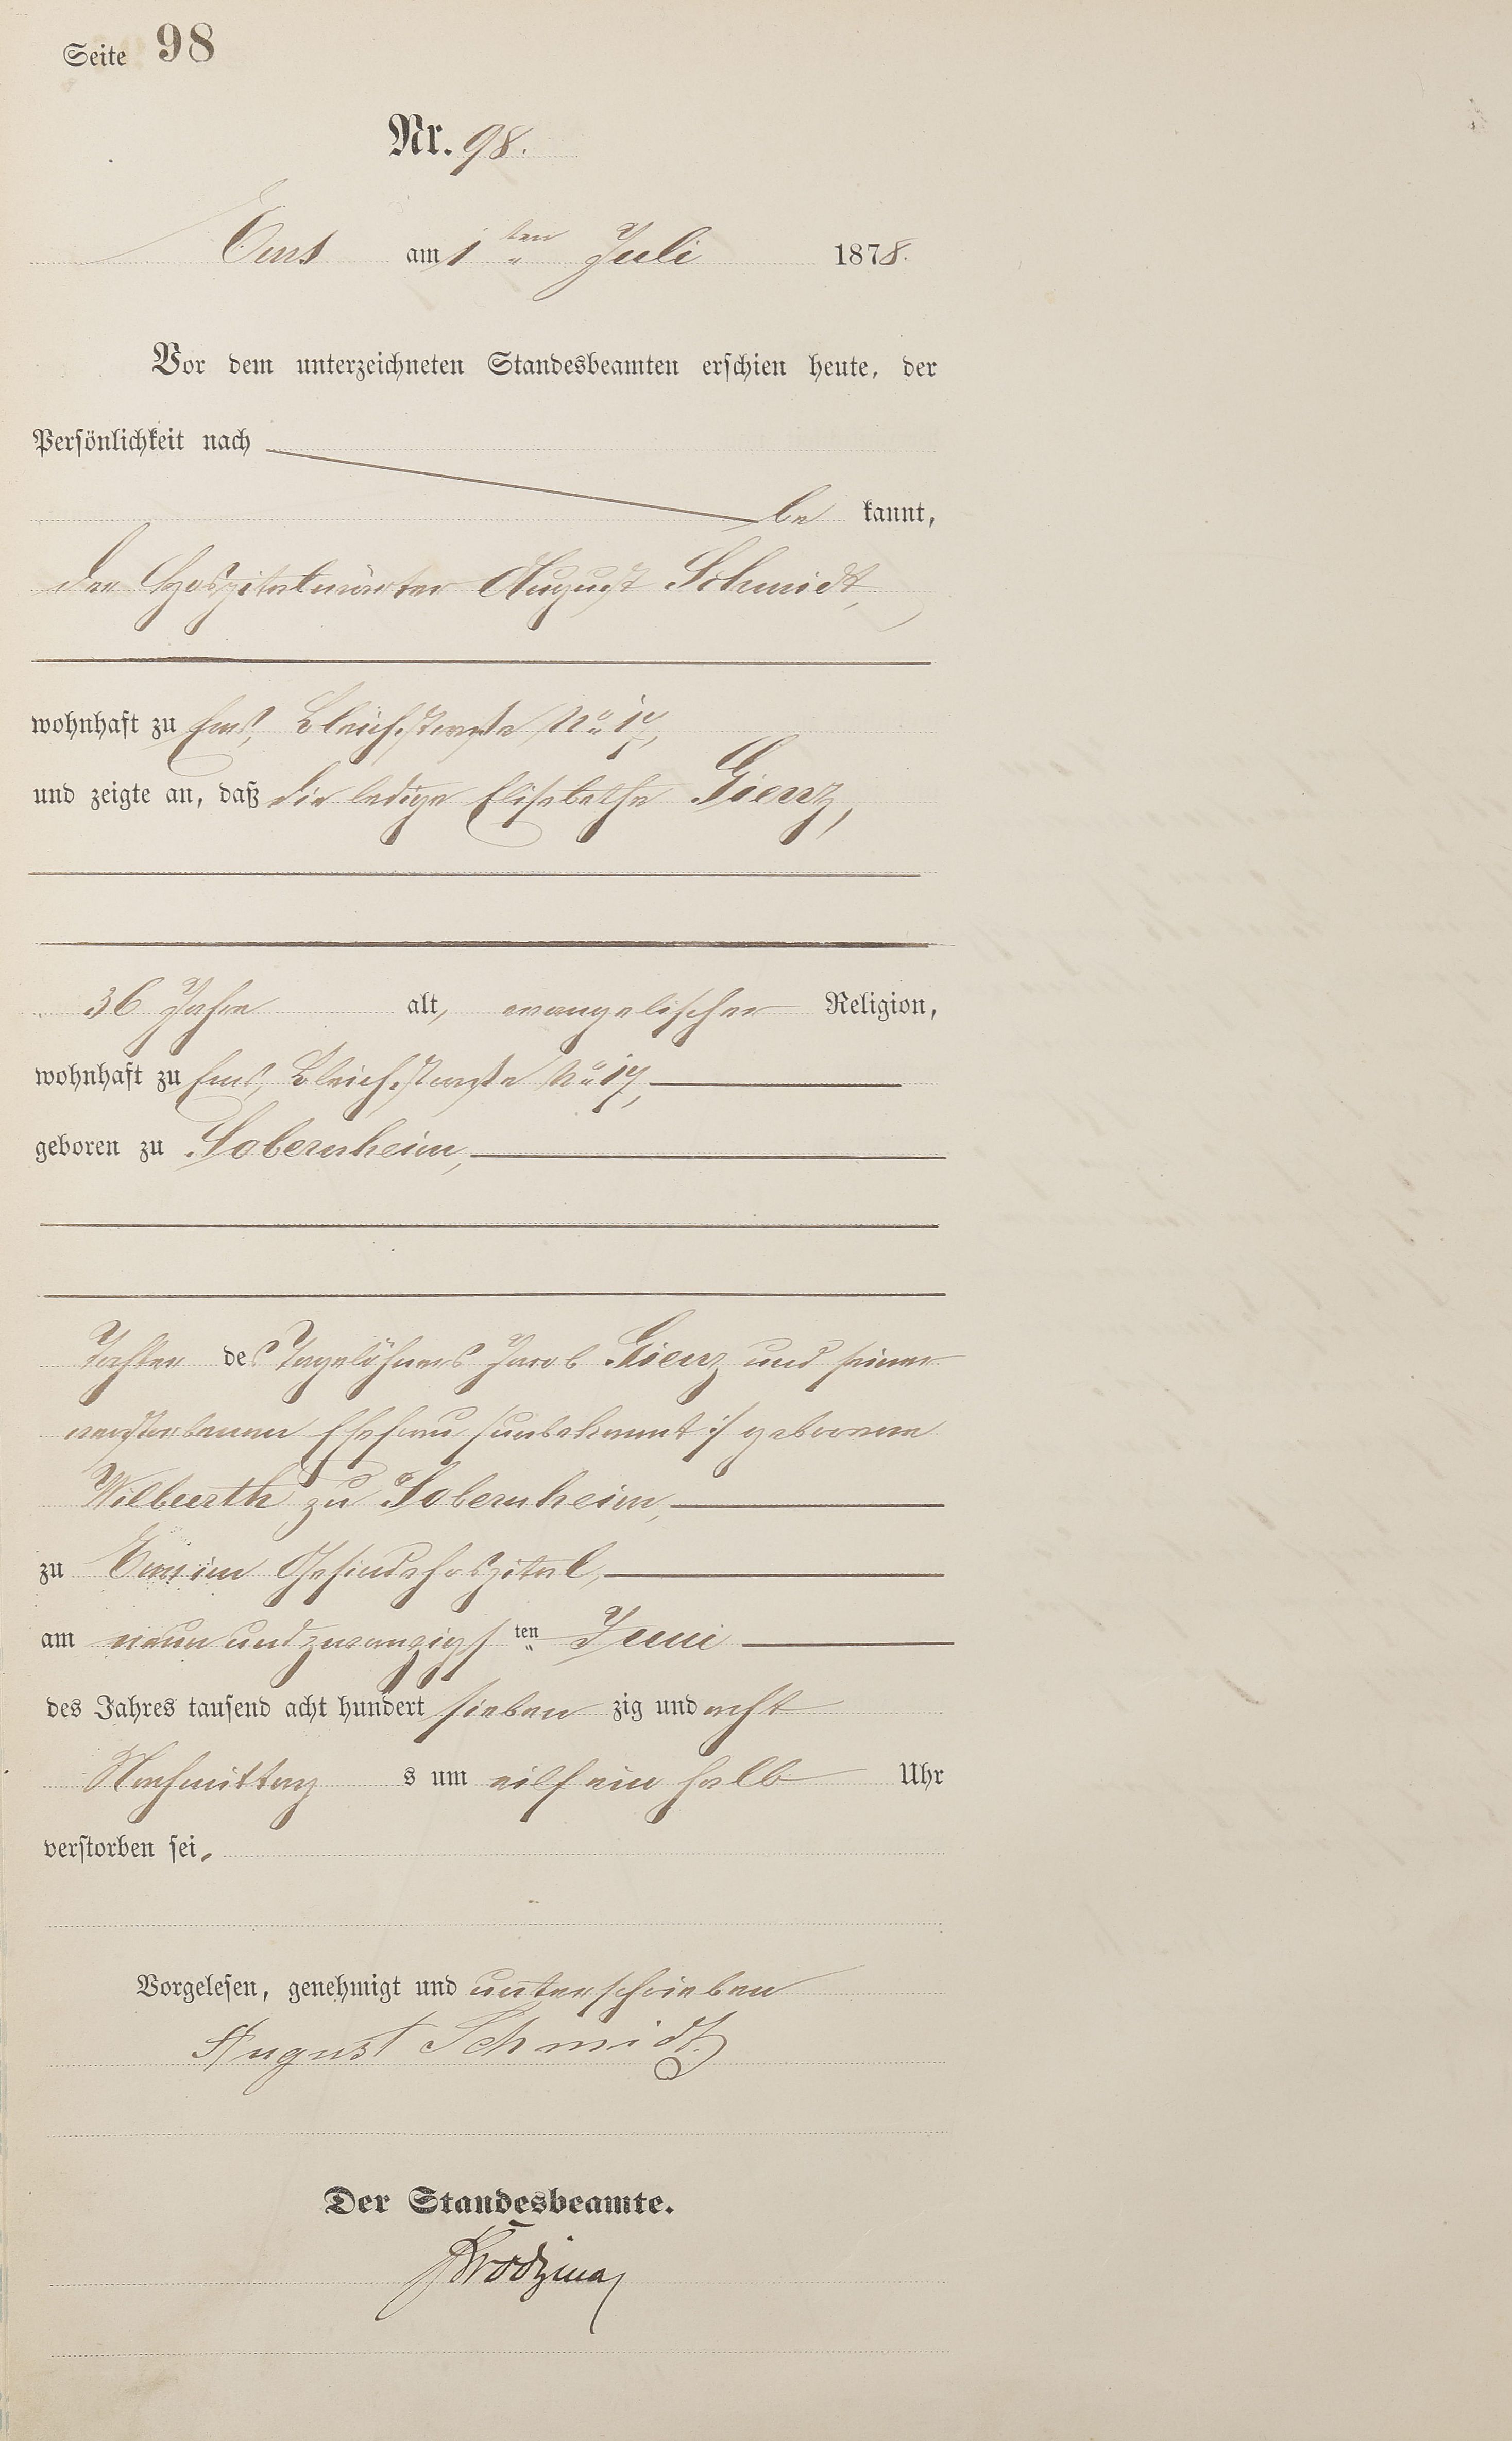 Seite 98
Nr. 98.
Ems am 1ten Juli 1878.
Vor dem unterzeichneten Standesbeamten erschien heute, der
Persönlichkeit nach
be kannt,
der Hospitalwärter August Schmidt,
wohnhaft zu Ems, Bleichstraße No 17,
und zeigte an, daß die ledige Elisabethe Gienz,
36 Jahre alt, evangelischer Religion,
wohnhaft zu Ems, Bleichstraße No 17,
geboren zu Sobernheim,
Tochter des Tagelöhners Jacob Gienz und seiner
verstorbenen Ehefrau /:unbekannt:/ geborene
zu Sobernheim,
zu Ems im Gesindehospital,
am neunundzwanzigsten Juni
des Jahres tausend acht hundert sieben zig und acht
Nachmittag s um eilf ein halb Uhr
verstorben sei.
Vorgelesen, genehmigt und unterschrieben
August Schmidt
Der Standesbeamte.